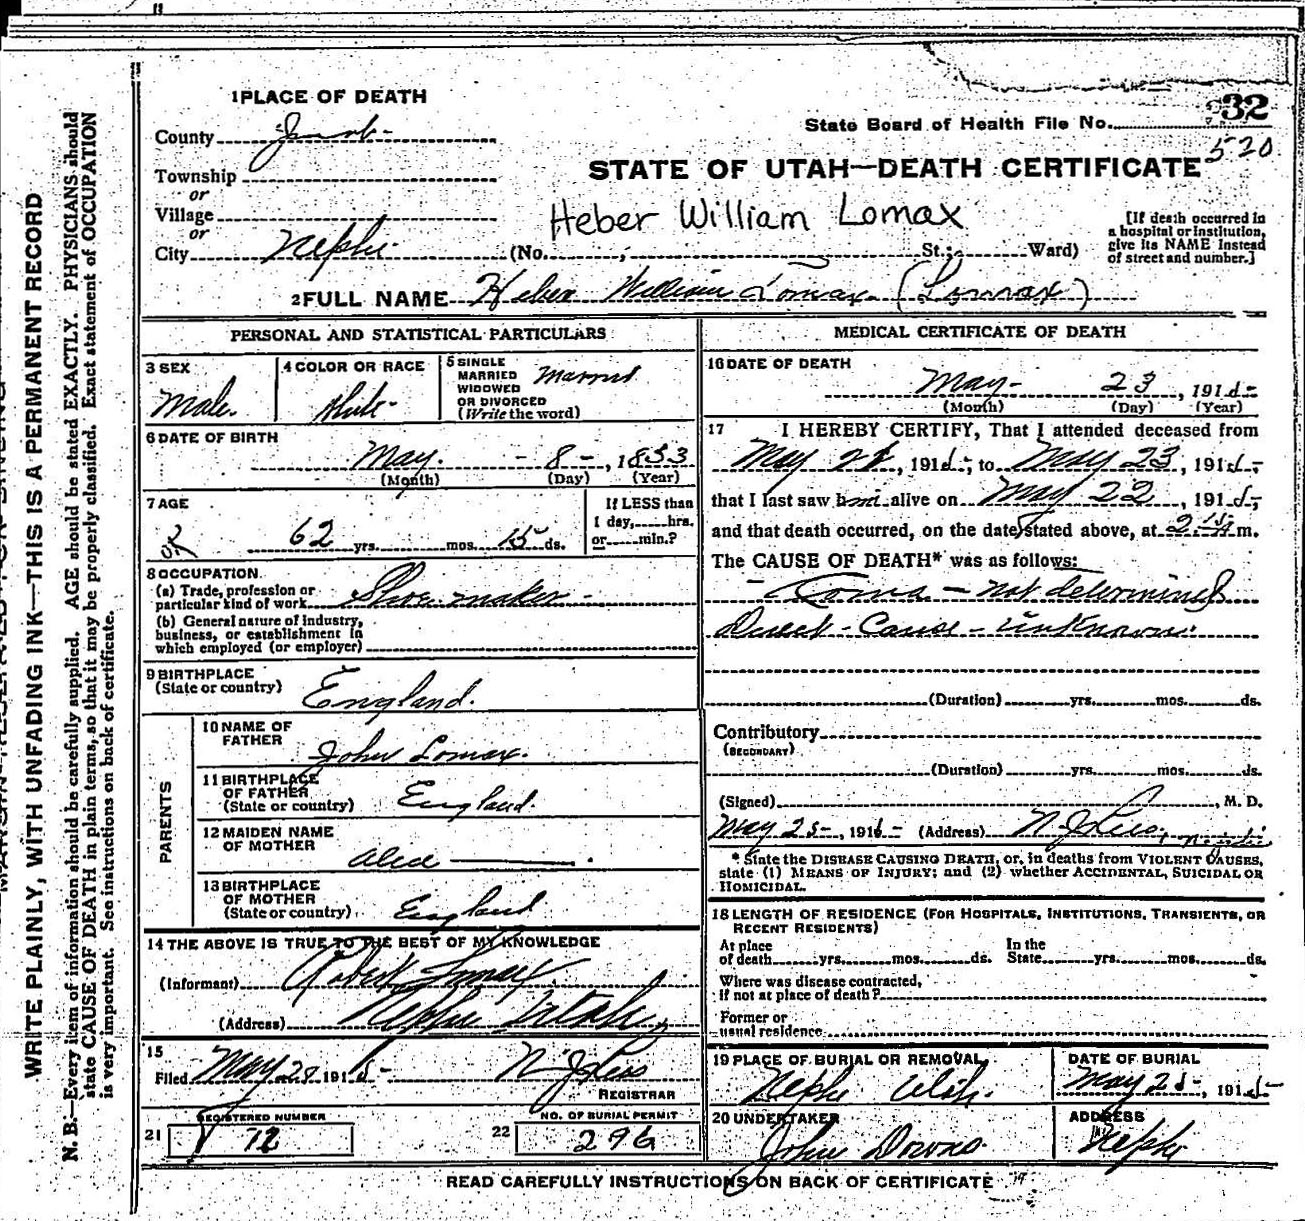 1 PLACE OF DEATH
County Juab
Township
or
Village
or
City Nephi (No. ; St.; Ward)
32
State Board of Health File No.
520
STATE OF UTAH—DEATH CERTIFICATE
Heber William Lomax
[If death occurred in
a hospital or institution,
give its NAME instead
of street and number.]
2 FULL NAME Heber William Lomax (Lomax)
PERSONAL AND STATISTICAL PARTICULARS
3 SEX
Male.
4 COLOR OR RACE
White
5 SINGLE
MARRIED
WIDOWED
OR DIVORCED
(Write the word)
Married
6 DATE OF BIRTH
May - 8 -, 1853
(Month) (Day) (Year)
7 AGE
62 yrs. mos. 15 ds.
If LESS than
1 day, hrs.
or min.?
8 OCCUPATION
(a) Trade, profession or
particular kind of work Shoe maker
(b) General nature of industry,
business, or establishment in
which employed (or employer)
9 BIRTHPLACE
(State or country) England.
PARENTS
10 NAME OF
FATHER John Lomax.
11 BIRTHPLACE
OF FATHER
(State or country) England.
12 MAIDEN NAME
OF MOTHER Alice
13 BIRTHPLACE
OF MOTHER
(State or country) England
14 THE ABOVE IS TRUE TO THE BEST OF MY KNOWLEDGE
(Informant) Robert Lomax
(Address) Nephi Utah,
15
Filed May 28 1915
REGISTRAR
21 REGISTERED NUMBER
72
22 NO. OF BURIAL PERMIT
296
MEDICAL CERTIFICATE OF DEATH
16 DATE OF DEATH
May 23, 1915
(Month) (Day) (Year)
17 I HEREBY CERTIFY, That I attended deceased from
May 22, 1915, to May 23, 1915,
that I last saw him alive on May 22, 1915,
and that death occurred, on the date stated above, at 2 m.
The CAUSE OF DEATH* was as follows:
Coma - not determined
Direct Cause - unknown
(Duration) yrs. mos. ds.
Contributory
(SECONDARY)
(Duration) yrs. mos. ds.
(Signed) , M. D.
May 25, 191 (Address)
* State the DISEASE CAUSING DEATH, or, in deaths from VIOLENT CAUSES,
state (1) MEANS OF INJURY; and (2) whether ACCIDENTAL, SUICIDAL OR
HOMICIDAL.
18 LENGTH OF RESIDENCE (FOR HOSPITALS, INSTITUTIONS, TRANSIENTS, OR
RECENT RESIDENTS)
At place
of death yrs. mos. ds.
In the
State yrs. mos. ds.
Where was disease contracted,
if not at place of death?
Former or
usual residence
19 PLACE OF BURIAL OR REMOVAL
Nephi Utah.
DATE OF BURIAL
May 25, 1915
20 UNDERTAKER
John Downs
ADDRESS
Nephi
READ CAREFULLY INSTRUCTIONS ON BACK OF CERTIFICATE
WRITE PLAINLY, WITH UNFADING INK—THIS IS A PERMANENT RECORD
N. B.—Every item of information should be carefully supplied. AGE should be stated EXACTLY. PHYSICIANS should
state CAUSE OF DEATH in plain terms, so that it may be properly classified. Exact statement of OCCUPATION
is very important. See instructions on back of certificate.